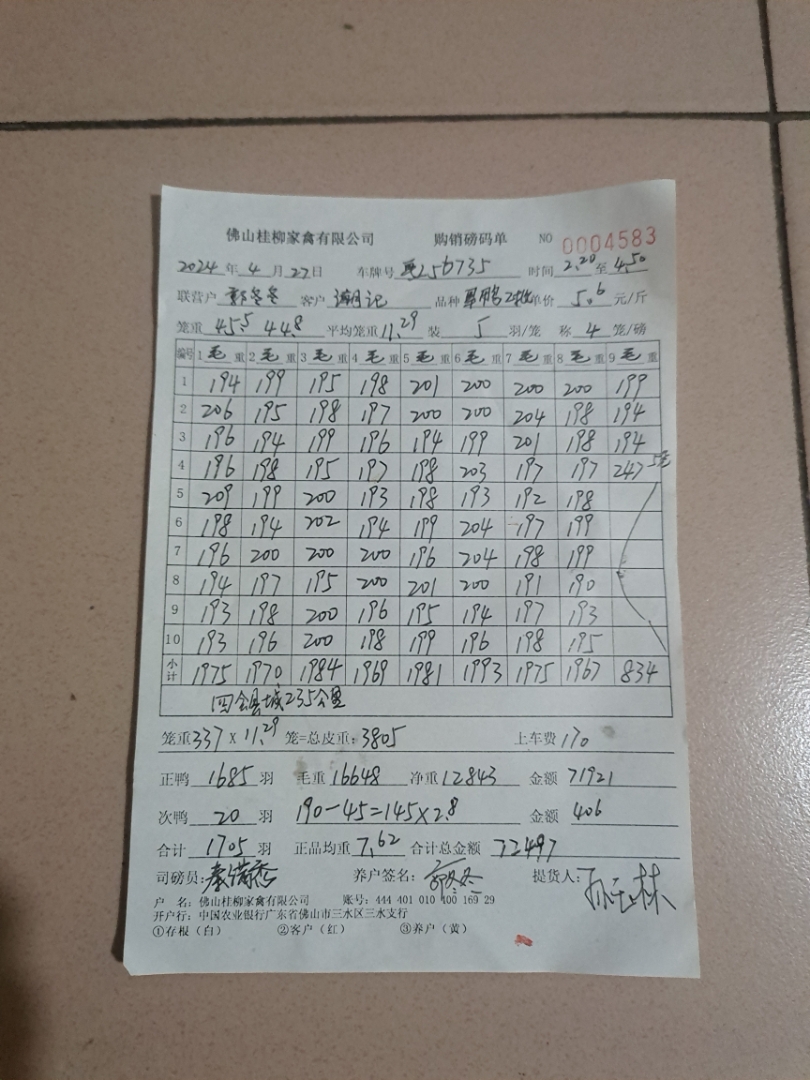 佛山桂柳家禽有限公司 购销磅码单 NO 0004583
2024 年 4 月 27 日 车牌号 256735 时间 2.20 至 4.50
联营户 郭冬冬 客户 潮记 品种 单价 5.6 元/斤
笼重 45.5 44.8 平均笼重 11.29 装 5 羽/笼 称 4 笼/磅
编号 1 毛 重 2 毛 重 3 毛 重 4 毛 重 5 毛 重 6 毛 重 7 毛 重 8 毛 重 9 毛 重
1 194 199 195 198 201 200 200 200 199
2 206 195 198 197 200 200 204 198 194
3 196 194 199 196 194 199 201 198 194
4 196 198 195 197 198 203 197 197 247 5笼
5 209 199 200 193 198 193 192 198
6 198 194 202 194 199 204 197 199
7 196 200 200 200 196 204 198 199
8 194 197 195 200 201 200 191 190
9 193 198 200 196 195 194 197 193
10 193 196 200 198 199 196 198 195
小计 1975 1970 1984 1969 1981 1993 1975 1967 834
四会县城235公里
笼重 337 X 11.29 笼=总皮重: 3805 上车费 170
正鸭 1685 羽 毛重 16648 净重 12843 金额 71921
次鸭 20 羽 190-45=145X2.8 金额 406
合计 1705 羽 正品均重 7.62 合计总金额 72497
司磅员: 养户签名: 郭冬冬 提货人:
户 名: 佛山桂柳家禽有限公司 账号: 444 401 010 400 169 29
开户行: 中国农业银行广东省佛山市三水区三水支行
①存根（白） ②客户（红） ③养户（黄）